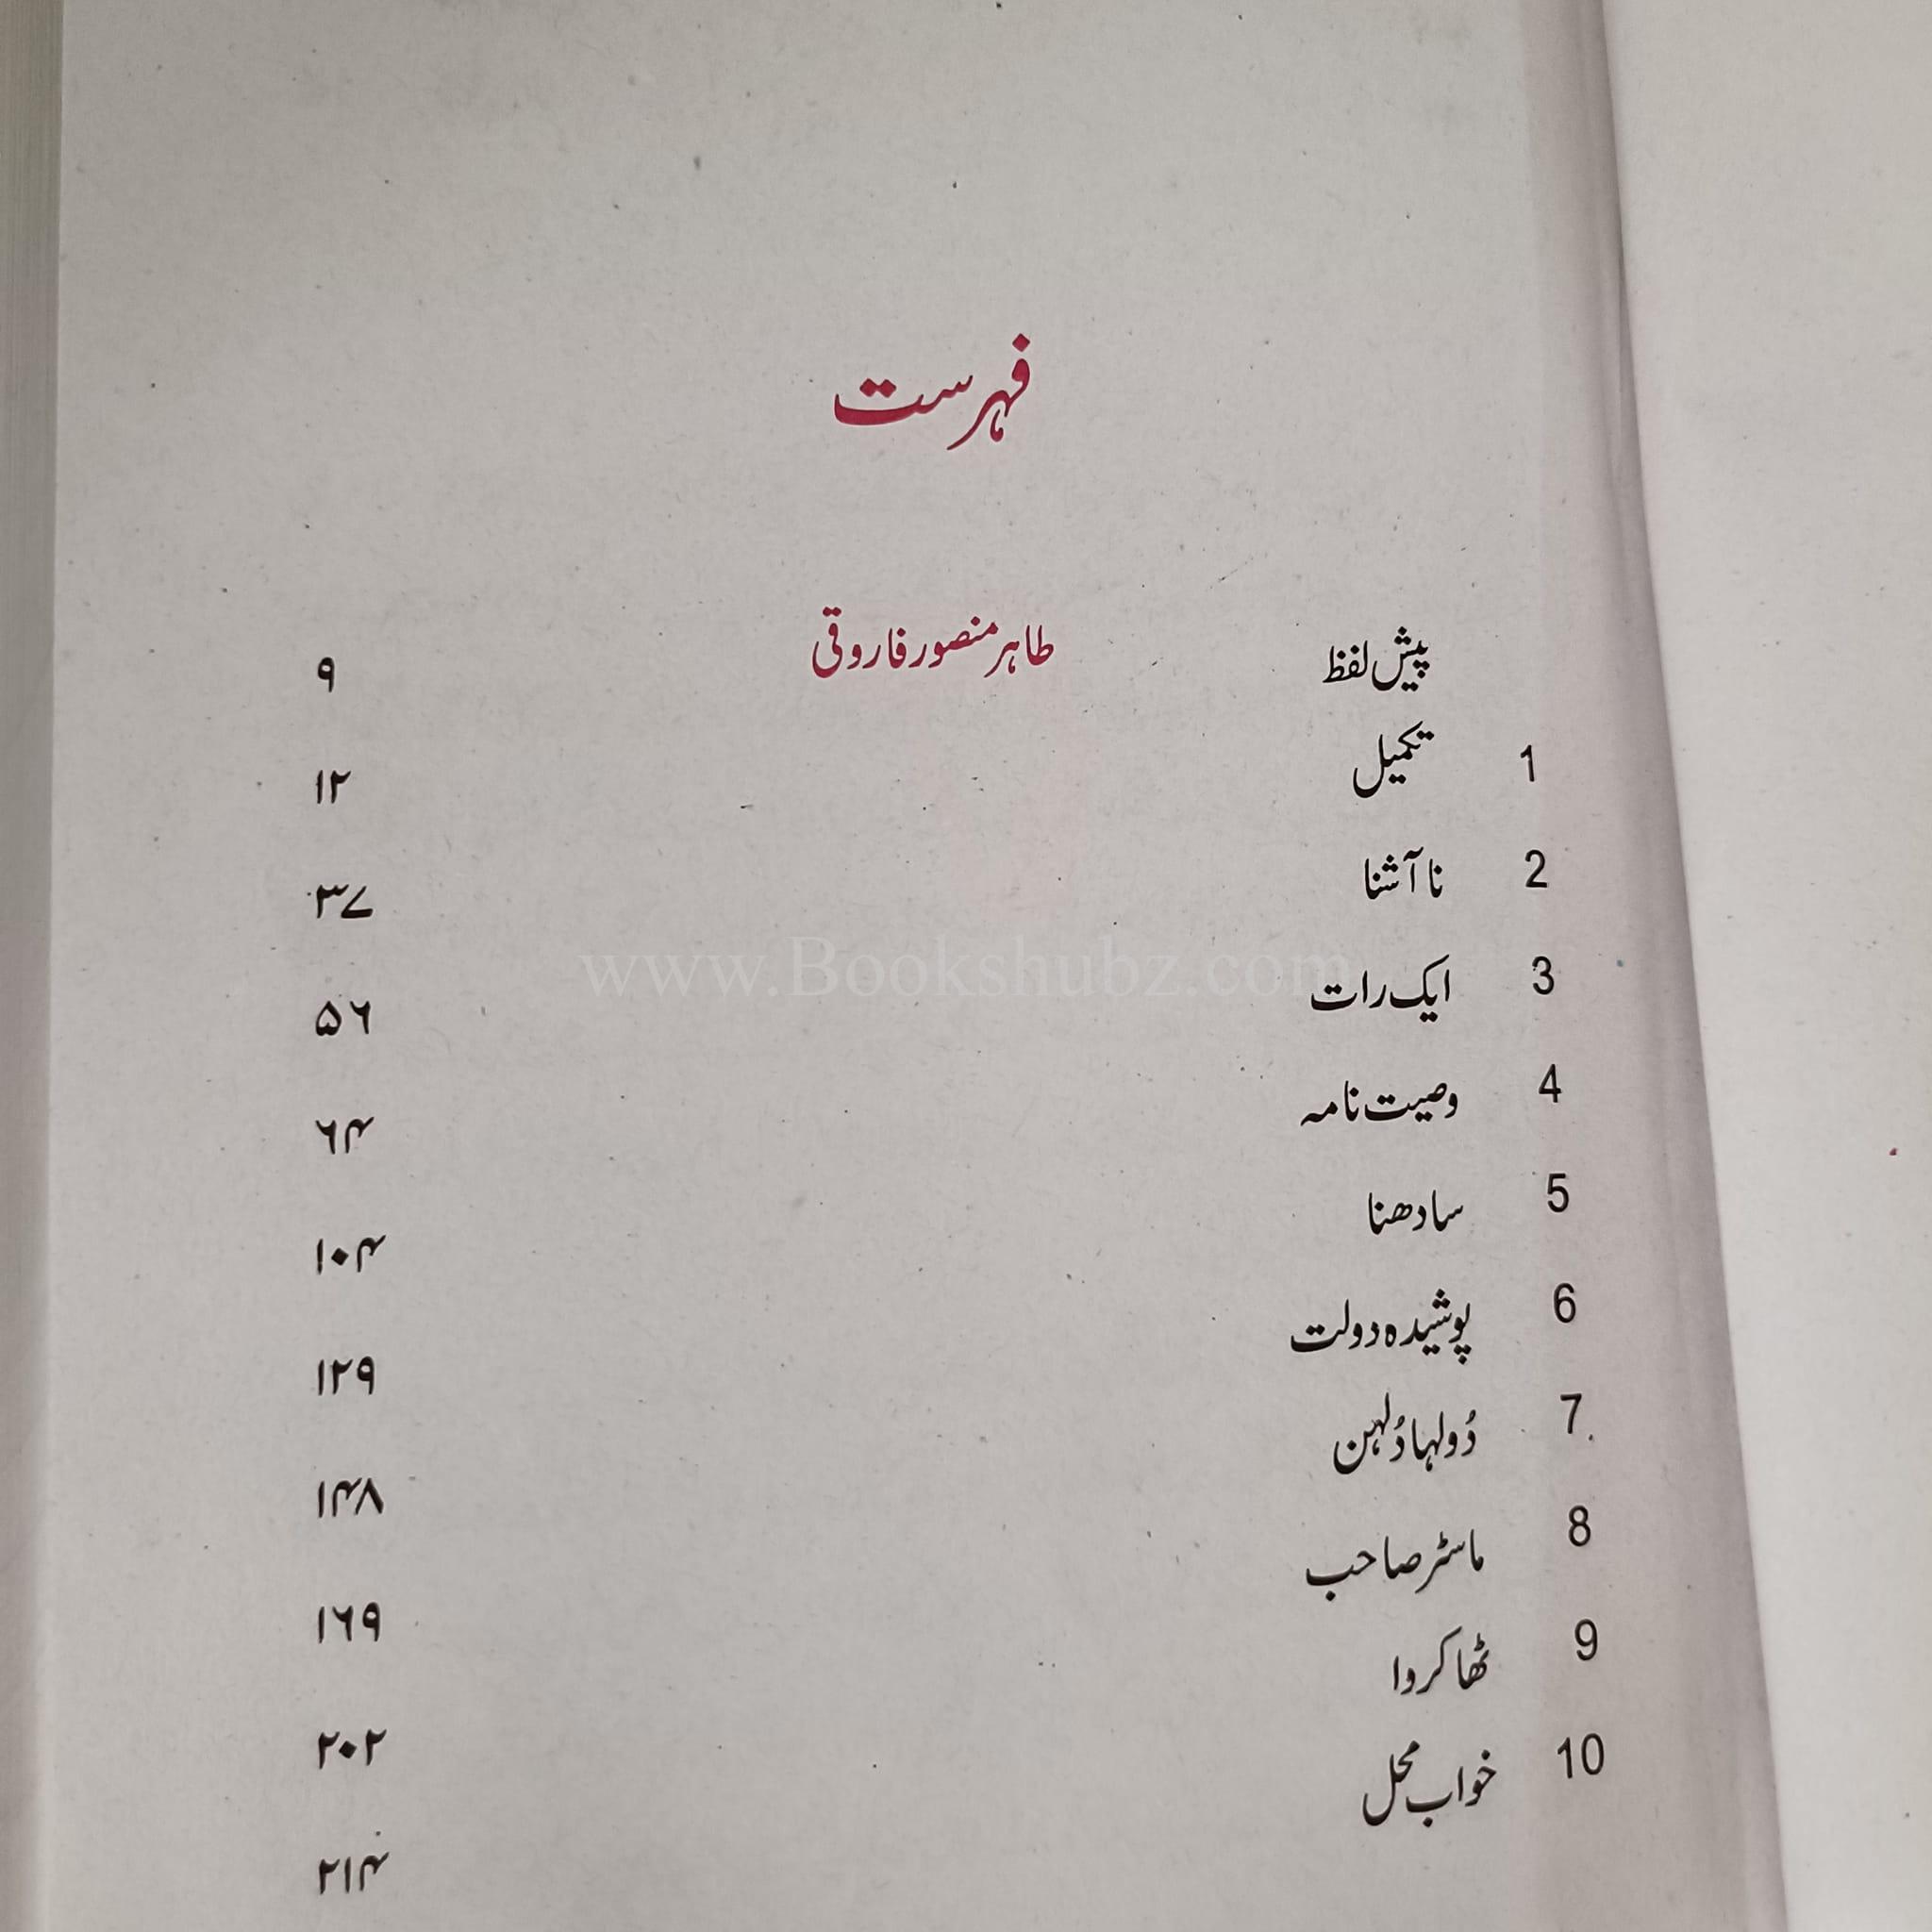 فہرست
پیش لفظ طاہر منصور فاروقی ۹
1 تکمیل ۱۲
2 نا آشنا ۳۷
3 ایک رات ۵۶
4 وصیت نامہ ۶۴
5 سادھنا ۱۰۴
6 پوشیدہ دولت ۱۲۹
7 دُولہا دُلہن ۱۴۸
8 ماسٹر صاحب ۱۶۹
9 ٹھاکروا ۲۰۲
10 خواب محل ۲۱۴
www.Bookshubz.com